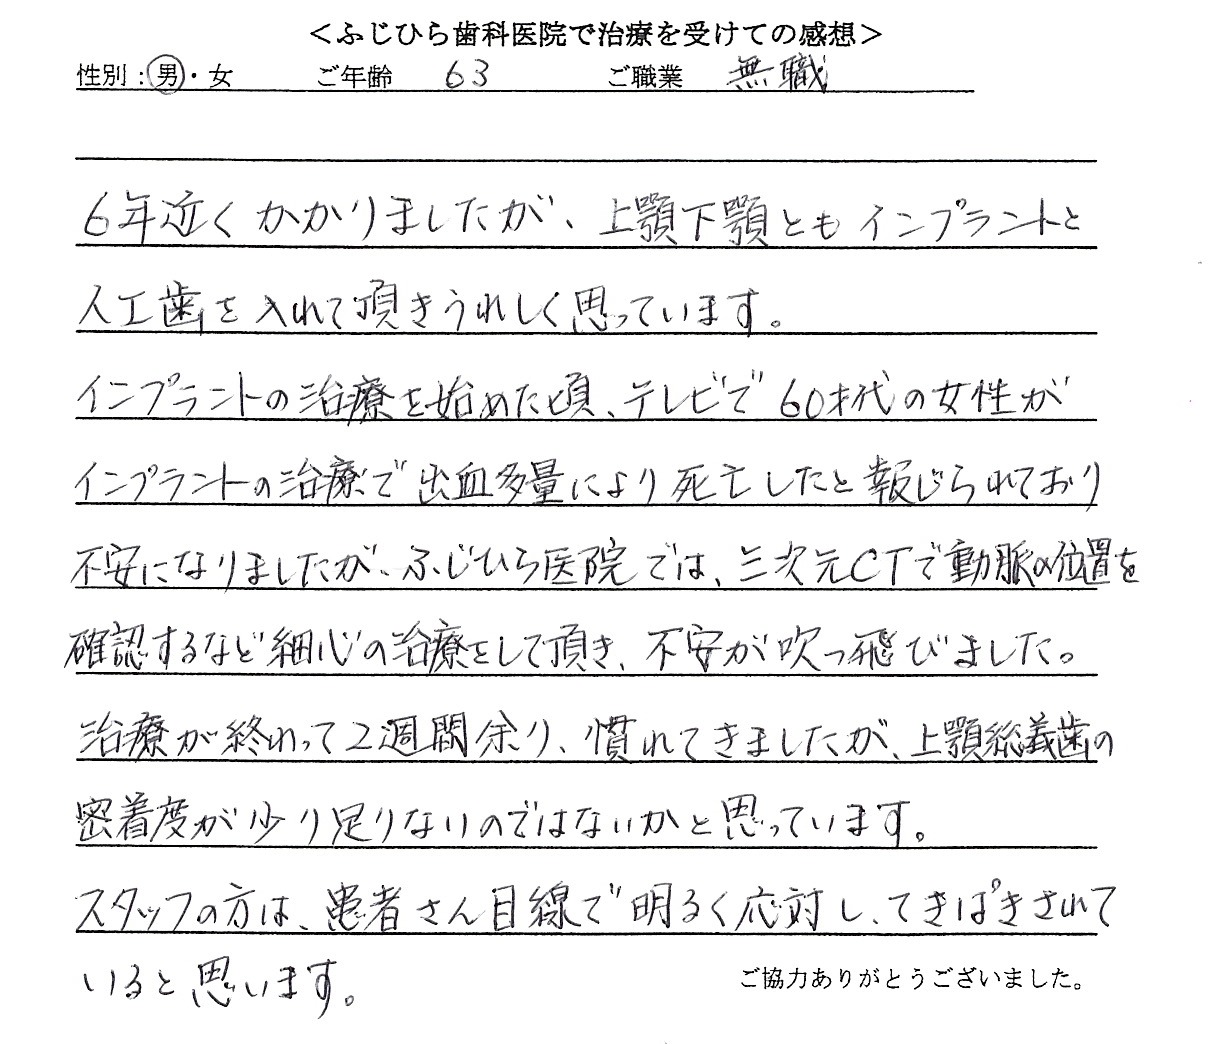 ＜ふじひら歯科医院で治療を受けての感想＞
性別：男・女　ご年齢　63　ご職業　無職
6年近くかかりましたが、上顎下顎ともインプラントと
人工歯を入れて頂きうれしく思っています。
インプラントの治療を始めた頃、テレビで60才代の女性が
インプラントの治療で出血多量により死亡したと報じられており
不安になりましたが、ふじひら医院では、三次元CTで動脈の位置を
確認するなど細心の治療をして頂き、不安が吹っ飛びました。
治療が終わって2週間余り、慣れてきましたが、上顎総義歯の
密着度が少り足りないのではないかと思っています。
スタッフの方は、患者さん目線で明るく応対し、てきぱきされて
いると思います。
ご協力ありがとうございました。